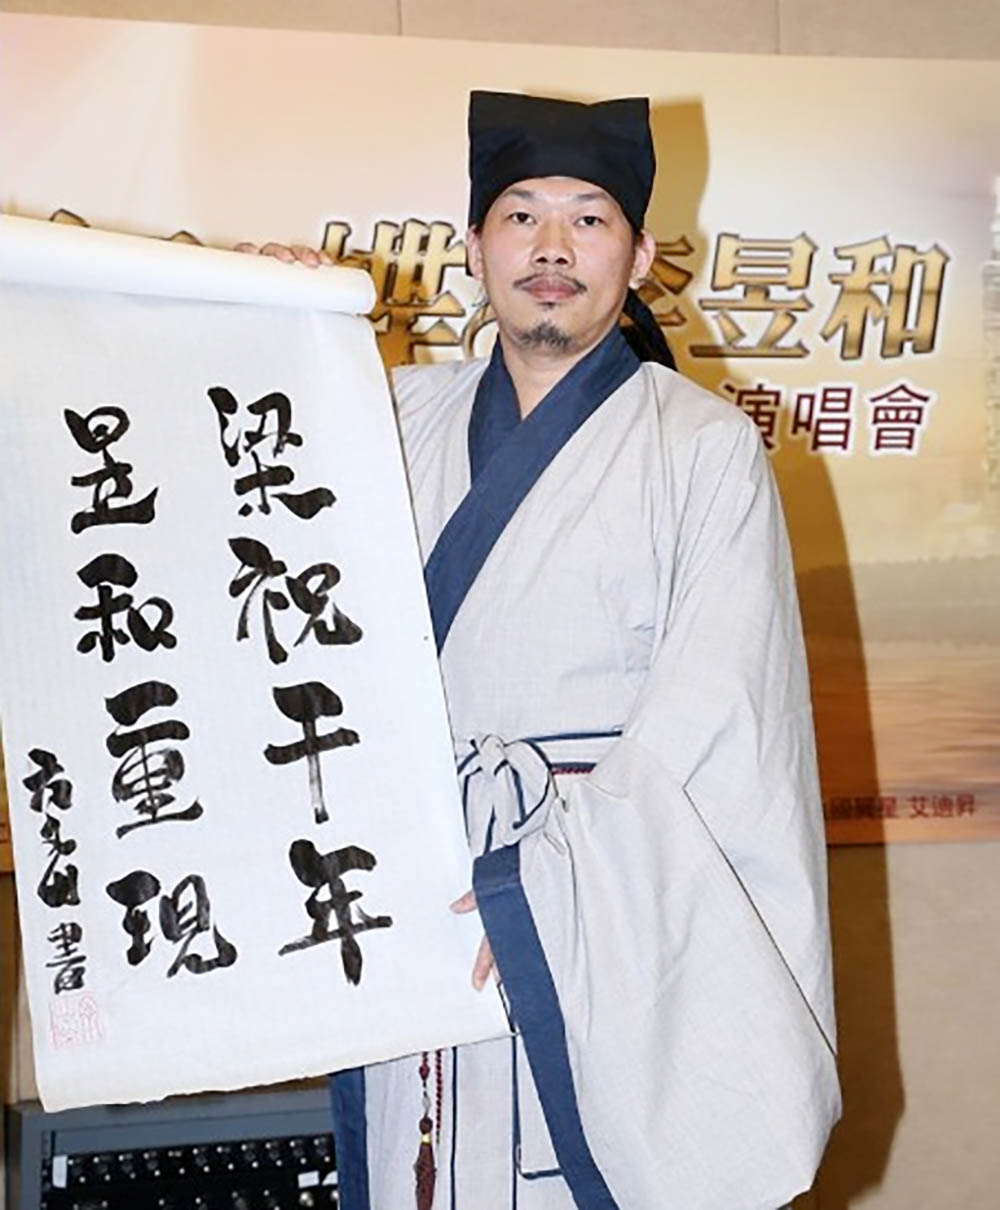 梁祝千年
昱和重現
方文山書
李昱和
演唱會
艾迪昇